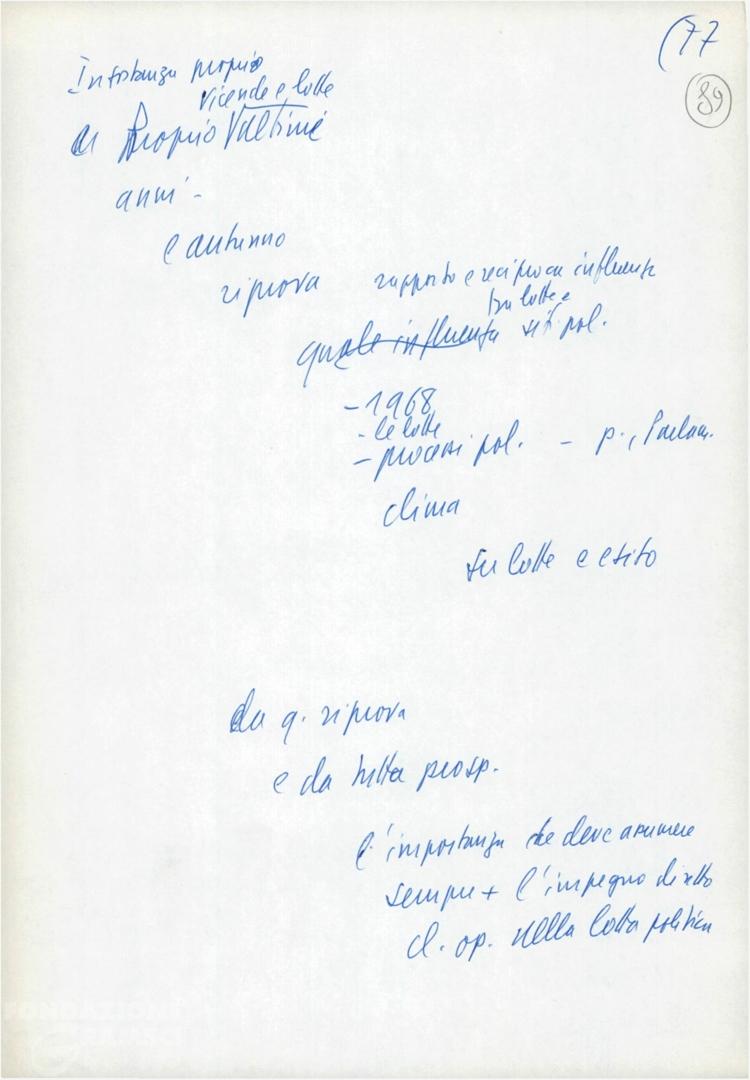 (77
89
In sostanza proprio
vicende e lotte
di proprio ultimi
anni -
e autunno
riprova rapporto e reciproca influenza
tra lotte e
quale influenza sit. pol.
- 1968
- le lotte
- processi pol. - p., Parlam.
clima
su lotte e esito
da q. riprova
e da tutta prosp.
l'importanza che deve assumere
sempre + l'impegno diretto
cl. op. nella lotta politica
FONDAZIONE
GRAMSCI